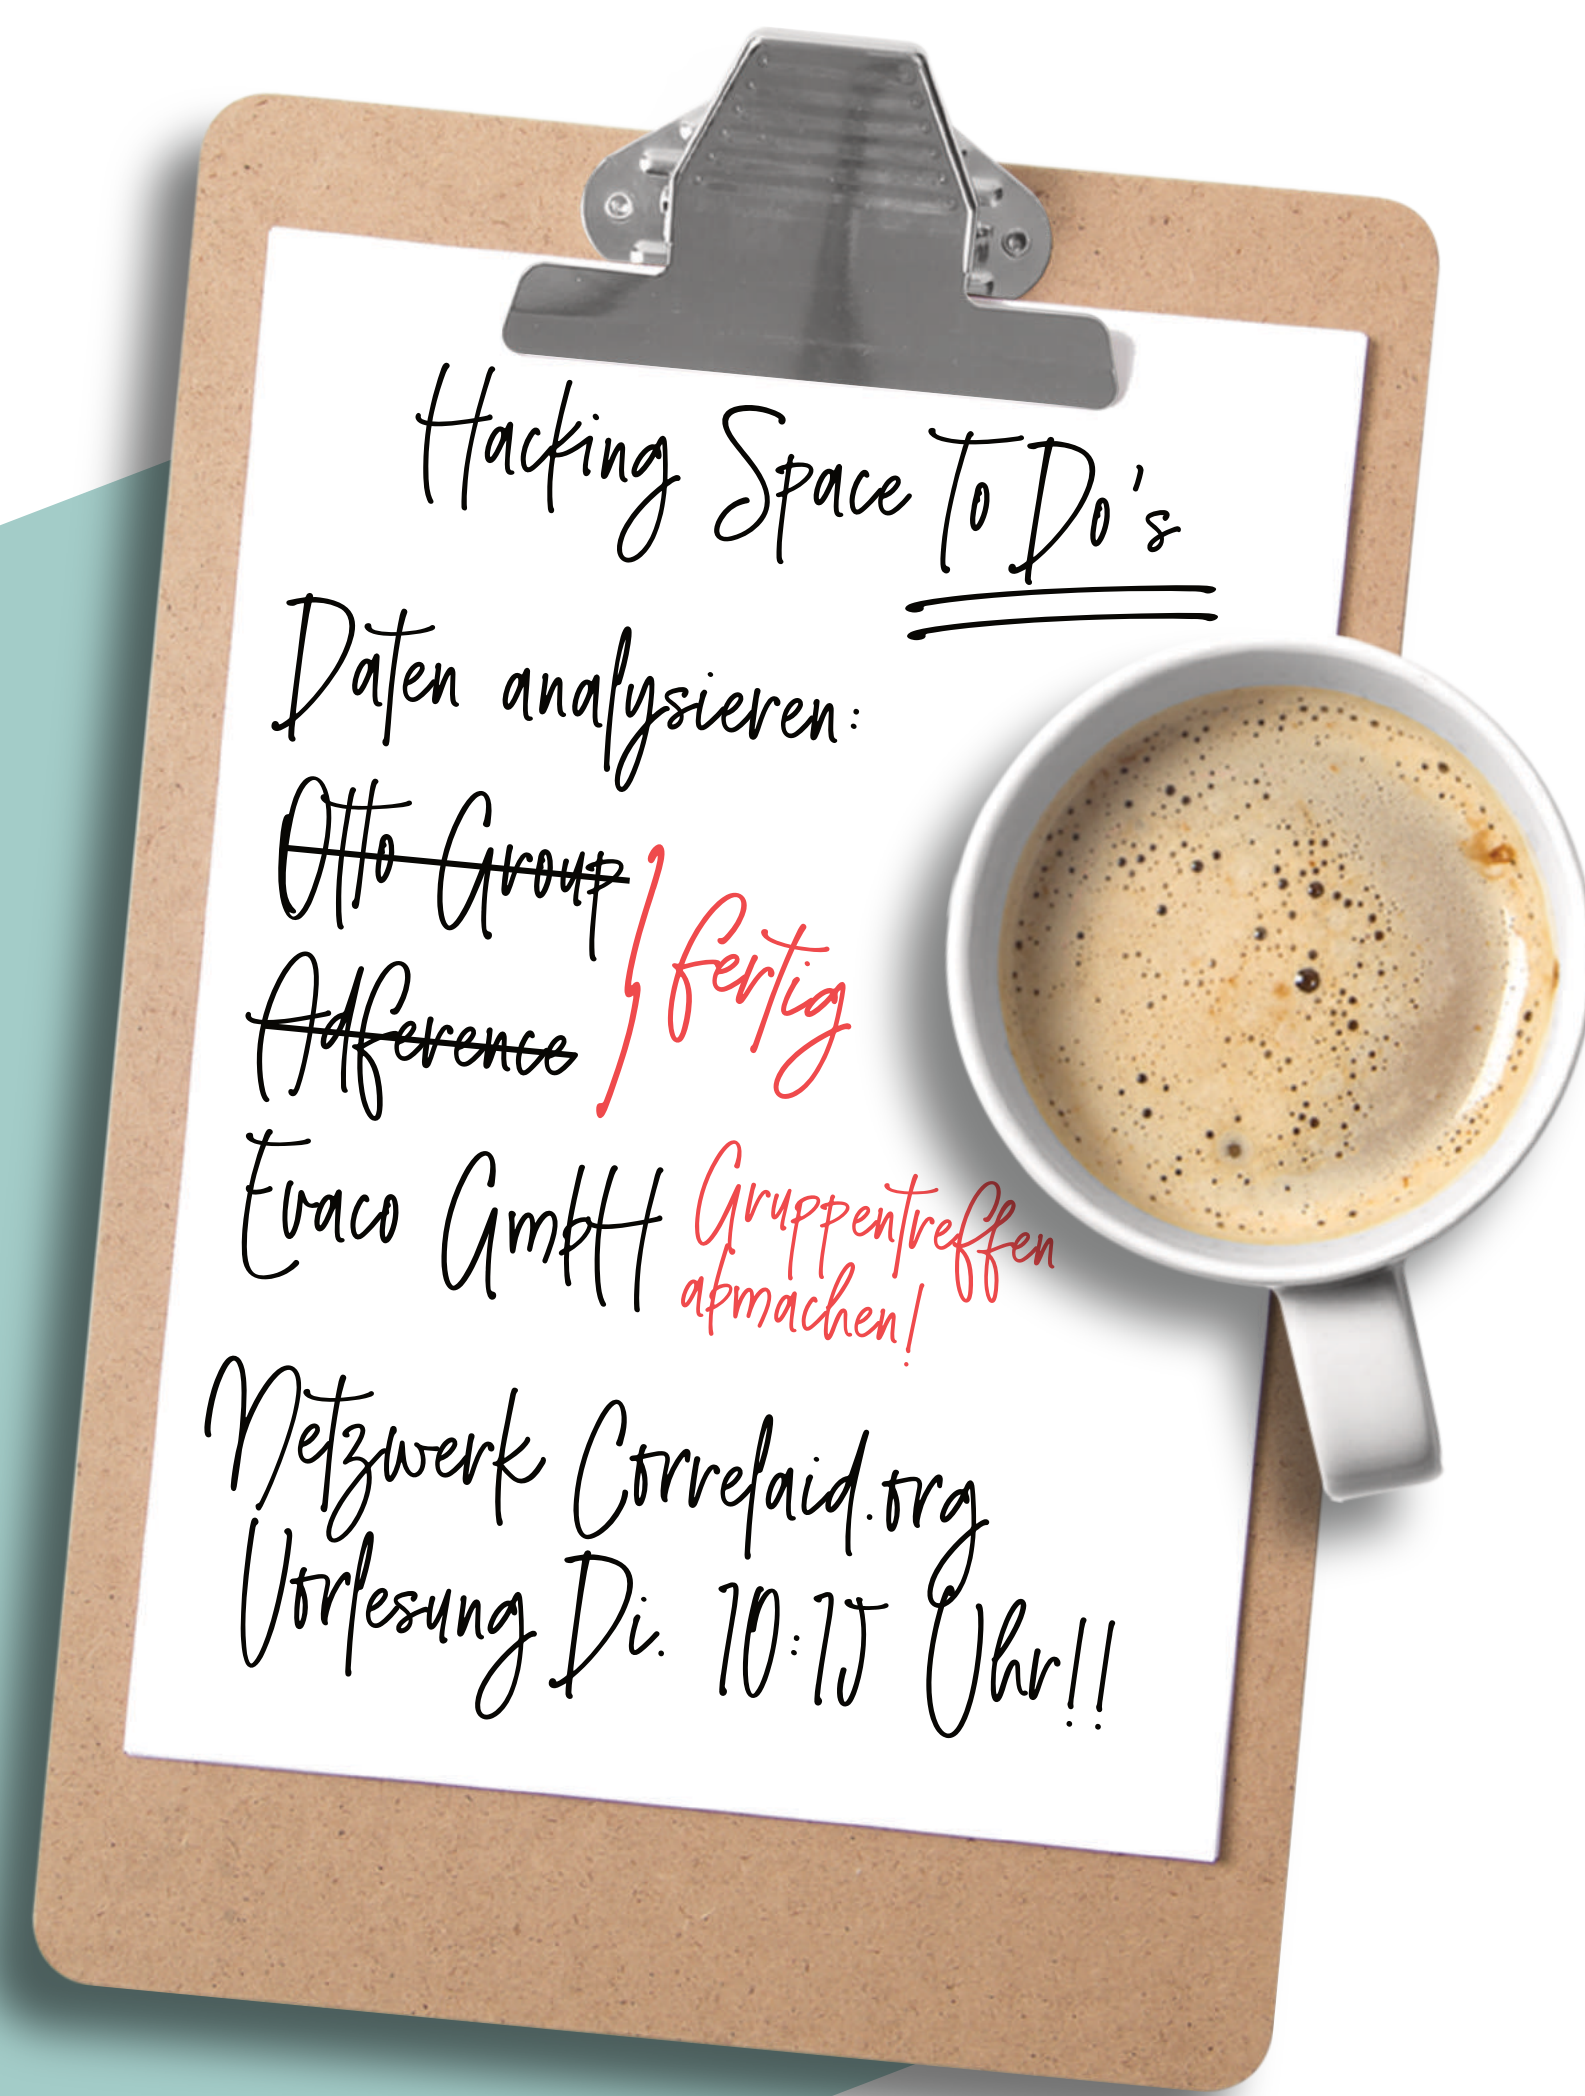 Hacking Space To Do's
Daten analysieren:
Otto Group
Adference
fertig
Evaco GmbH
Gruppentreffen
abmachen!
Netzwerk Correlaid.org
Vorlesung Di. 10:15 Uhr!!